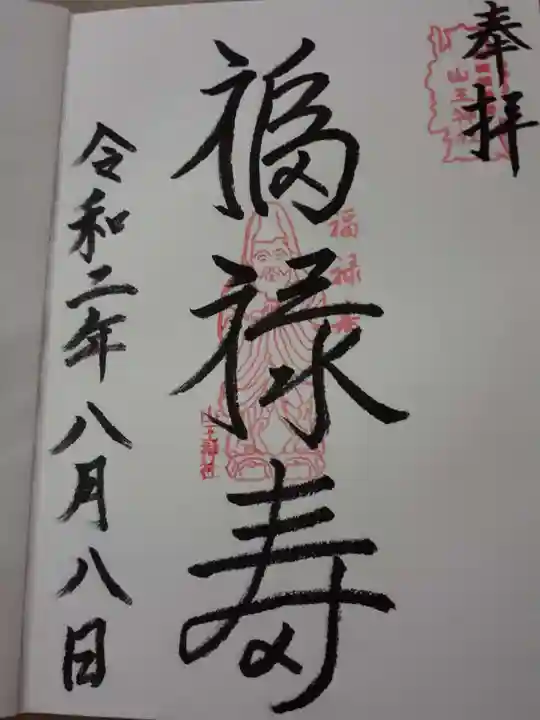 奉拝
山王神
福禄寿
福禄寿
山王神社
令和二年八月八日